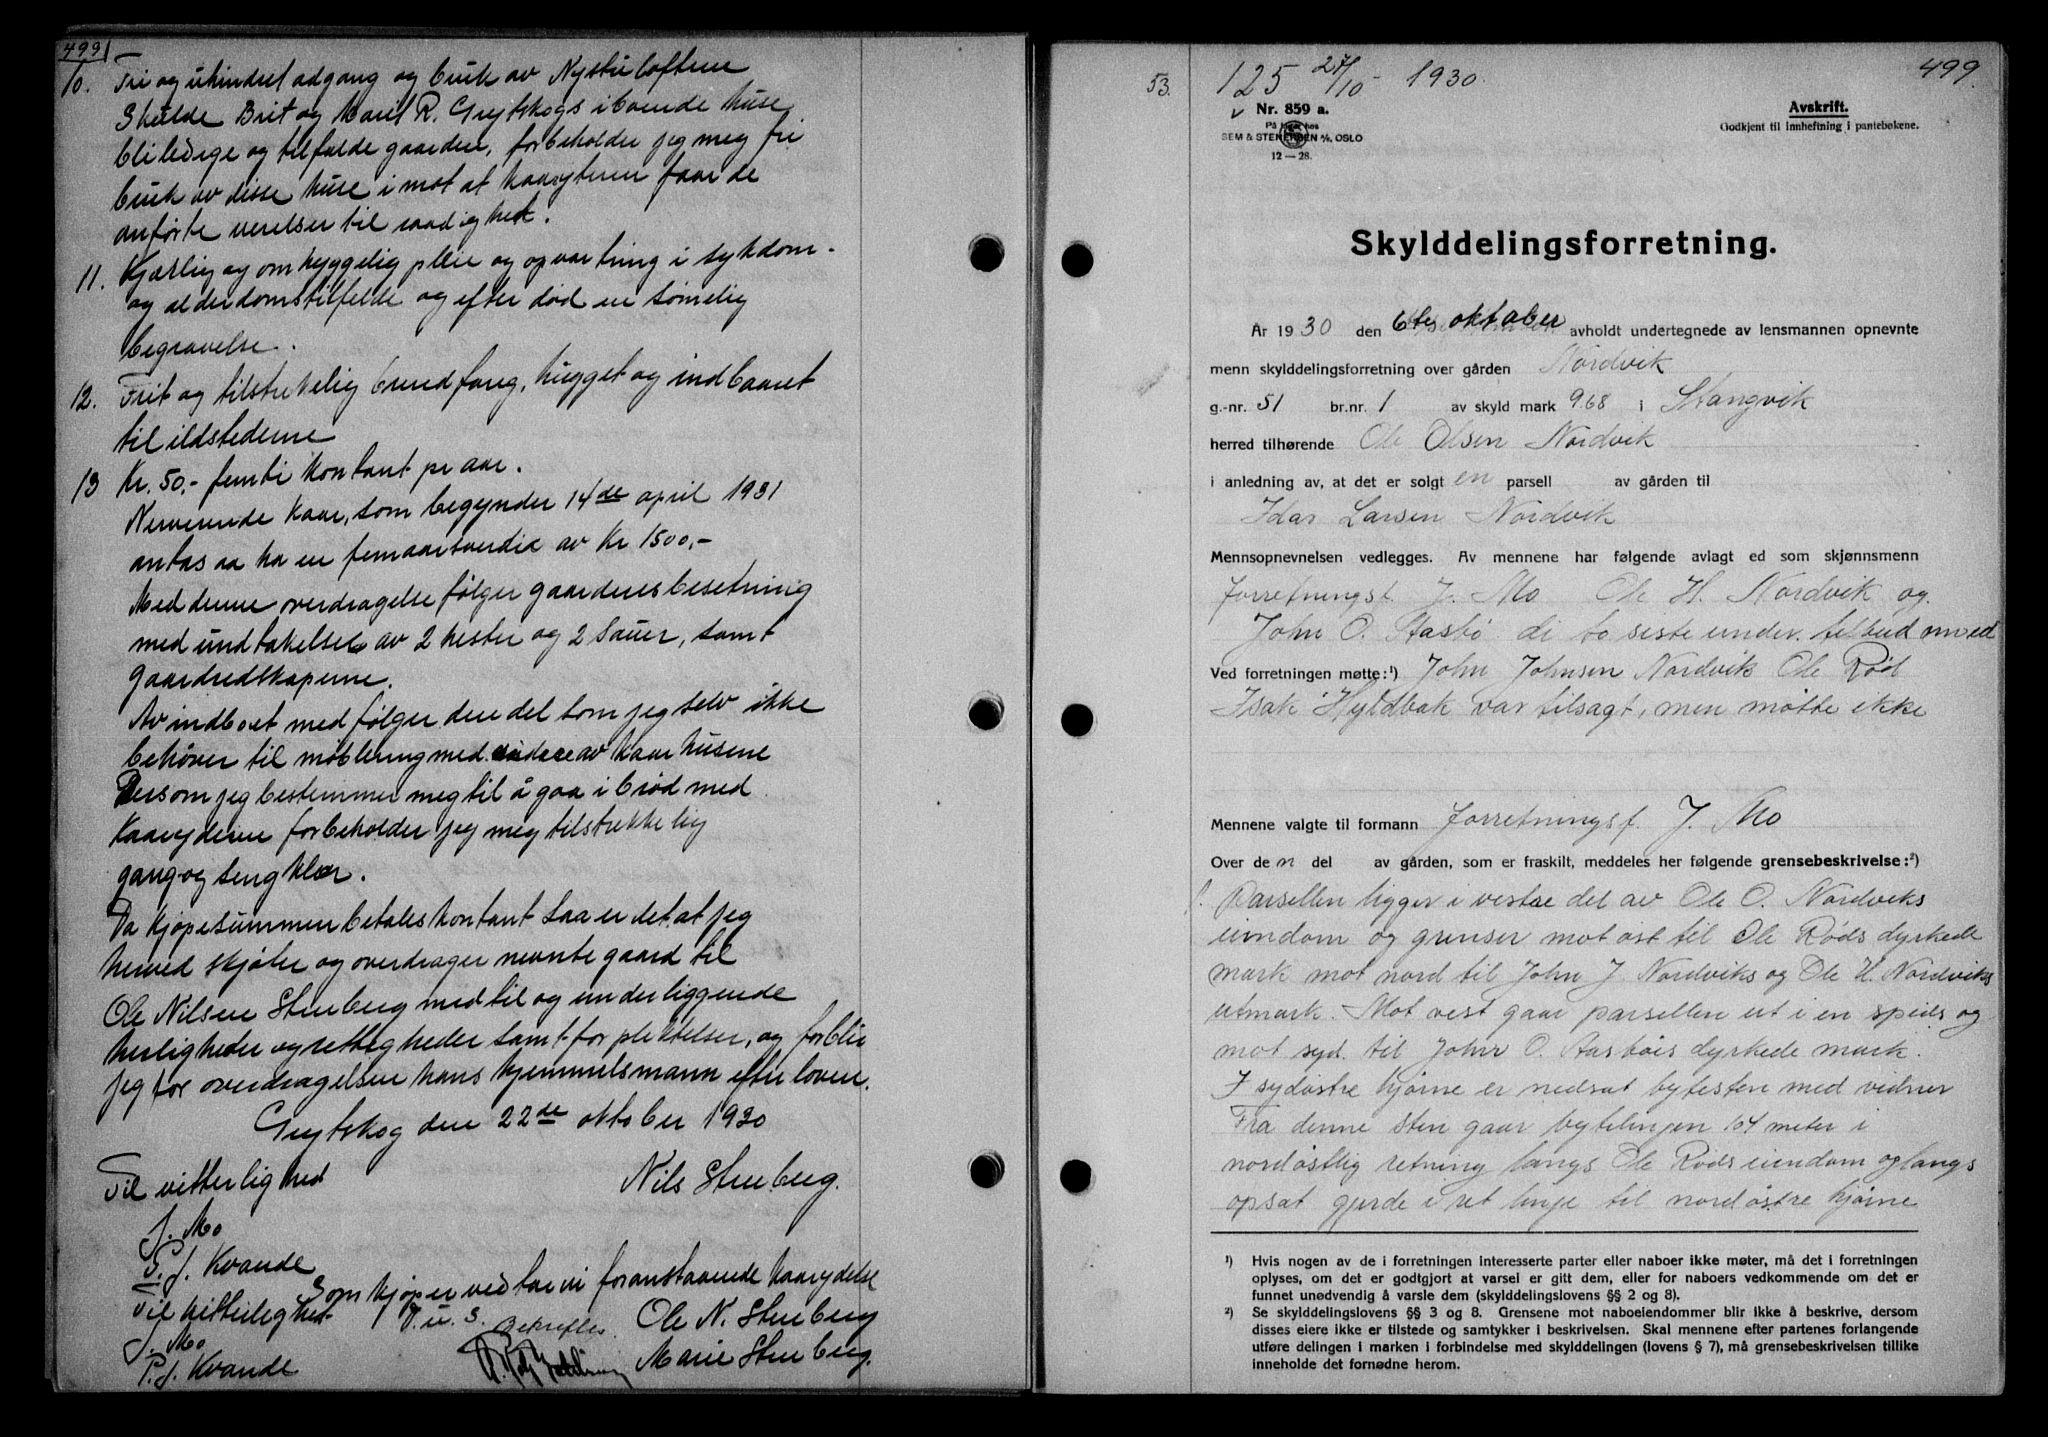 499
10. Fri og uhindret adgang og bruk av Nystuloftene
Skulde Brit og Marit R. Grytskogs iboende huse
bli ledige og tilfalde gaarden, forbeholder jeg meg fri
bruk av disse huse i mot at kaaryteren faar de
anførte verelser til raadighet.
11. Kjærlig og omhyggelig pleie og opvartning i sykdom-
og alderdomstilfelde og efter død en sømelig
begravelse.
12. Frit og tilstrekelig brendfang, hugget og indbaaret
til ildstederne
13 Kr. 50,- femti kontant pr aar.
Nerverende kaar, som begynder 14de april 1931
antas aa ha en femaarsverdi av Kr 1500,-
Med denne overdragelse følger gaardens besetning
med undtakelse av 2 hester og 2 Sauer, samt
gaardredskaperne.
Av indboet medfølger den del som jeg selv ikke
behøver til møblering med videre av kaarhusene
Dersom jeg bestemmer meg til å gaa i brød med
kaaryderne forbeholder jeg meg tilstrekkelig
gang og sengklær.
Da kjøpesummen betales kontant saa er det at jeg
herved skjøter og overdrager nevnte gaard til
Ole Nilsen Stenberg med til og underliggende
herligheder og rettigheder samt forpliktelser, og forblir
jeg for overdragelsen hans hjemmelsmann efter loven.
Grytskog den 22de oktober 1930
Til vitterlighed Nils Stenberg.
J. Mo
P. J. Kvande
Som kjøper vedtar vi foranstaaende kaarydelse
Til vitterlighet D.u.S. Bekreftes Ole N. Stenberg
J. Mo Marie Stenberg.
P. J. Kvande
53. 125 27/10 1930. 499.
Nr. 859 a.
På lager hos
SEM & STENERSEN A/S, OSLO
12—28.
Avskrift.
Godkjent til innheftning i pantebøkene.
Skylddelingsforretning.
År 1930 den 6te oktober avholdt undertegnede av lensmannen opnevnte
menn skylddelingsforretning over gården Nordvik
g.-nr. 51 br.nr. 1 av skyld mark 9.68 i Stangvik
herred tilhørende Ole Olsen Nordvik
i anledning av, at det er solgt en parsell av gården til
Idar Larsen Nordvik
Mennsopnevnelsen vedlegges. Av mennene har følgende avlagt ed som skjønnsmenn
forretningsf. J. Mo Ole H. Nordvik og
John O. Aasbø di to siste under tilbud om ed
Ved forretningen møtte:¹) John Johnsen Nordvik Ole Rød
Isak Hyldbak var tilsagt, men møtte ikke
Mennene valgte til formann forretningsf. J. Mo
Over den del av gården, som er fraskilt, meddeles her følgende grensebeskrivelse:²)
1. Parsellen ligger i vestre del av Ole O. Nordviks
eiendom og grenser mot ost til Ole Røds dyrkede
mark mot nord til John J. Nordviks og Ole H. Nordviks
utmark. Mot vest gaar parsellen ut i en spids og
mot syd. til John O. Aasbøs dyrkede mark.
I sydøstre hjørne er nedsat bytesten med vidner
Fra denne sten gaar bytelinjen 104 meter i
nordøstlig retning langs Ole Røds eiendom og langs
opsat gjerde i ret linje til nordøstre hjørne
¹) Hvis nogen av de i forretningen interesserte parter eller naboer ikke møter, må det i forretningen
oplyses, om det er godtgjort at varsel er gitt dem, eller for naboers vedkommende om det er
funnet unødvendig å varsle dem (skylddelingslovens §§ 2 og 8).
²) Se skylddelingslovens §§ 3 og 8. Grensene mot naboeiendommer blir ikke å beskrive, dersom
disses eiere ikke er tilstede og samtykker i beskrivelsen. Skal mennene efter partenes forlangende
utføre delingen i marken i forbindelse med skylddelingen (lovens § 7), må grensebeskrivelsen tillike
inneholde det fornødne herom.